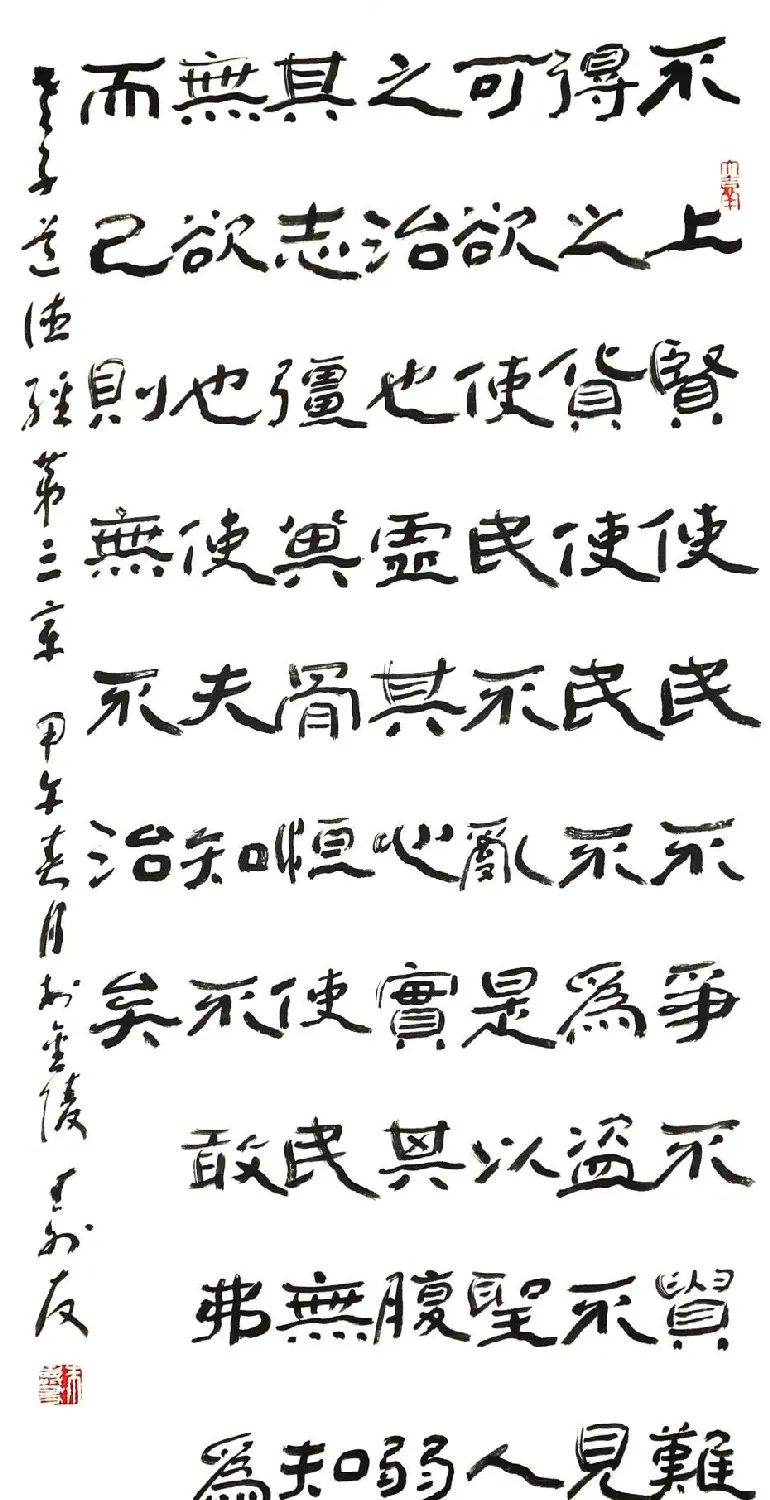 不上賢使民不爭不貴難
得之貨使民不爲盜不見
可欲使民不亂是以聖人
之治也虛其心實其腹弱
其志彊其骨恒使民無知
無欲也使夫知不敢弗爲
而已則無不治矣
老子道德經第三章 甲午春月於金陵